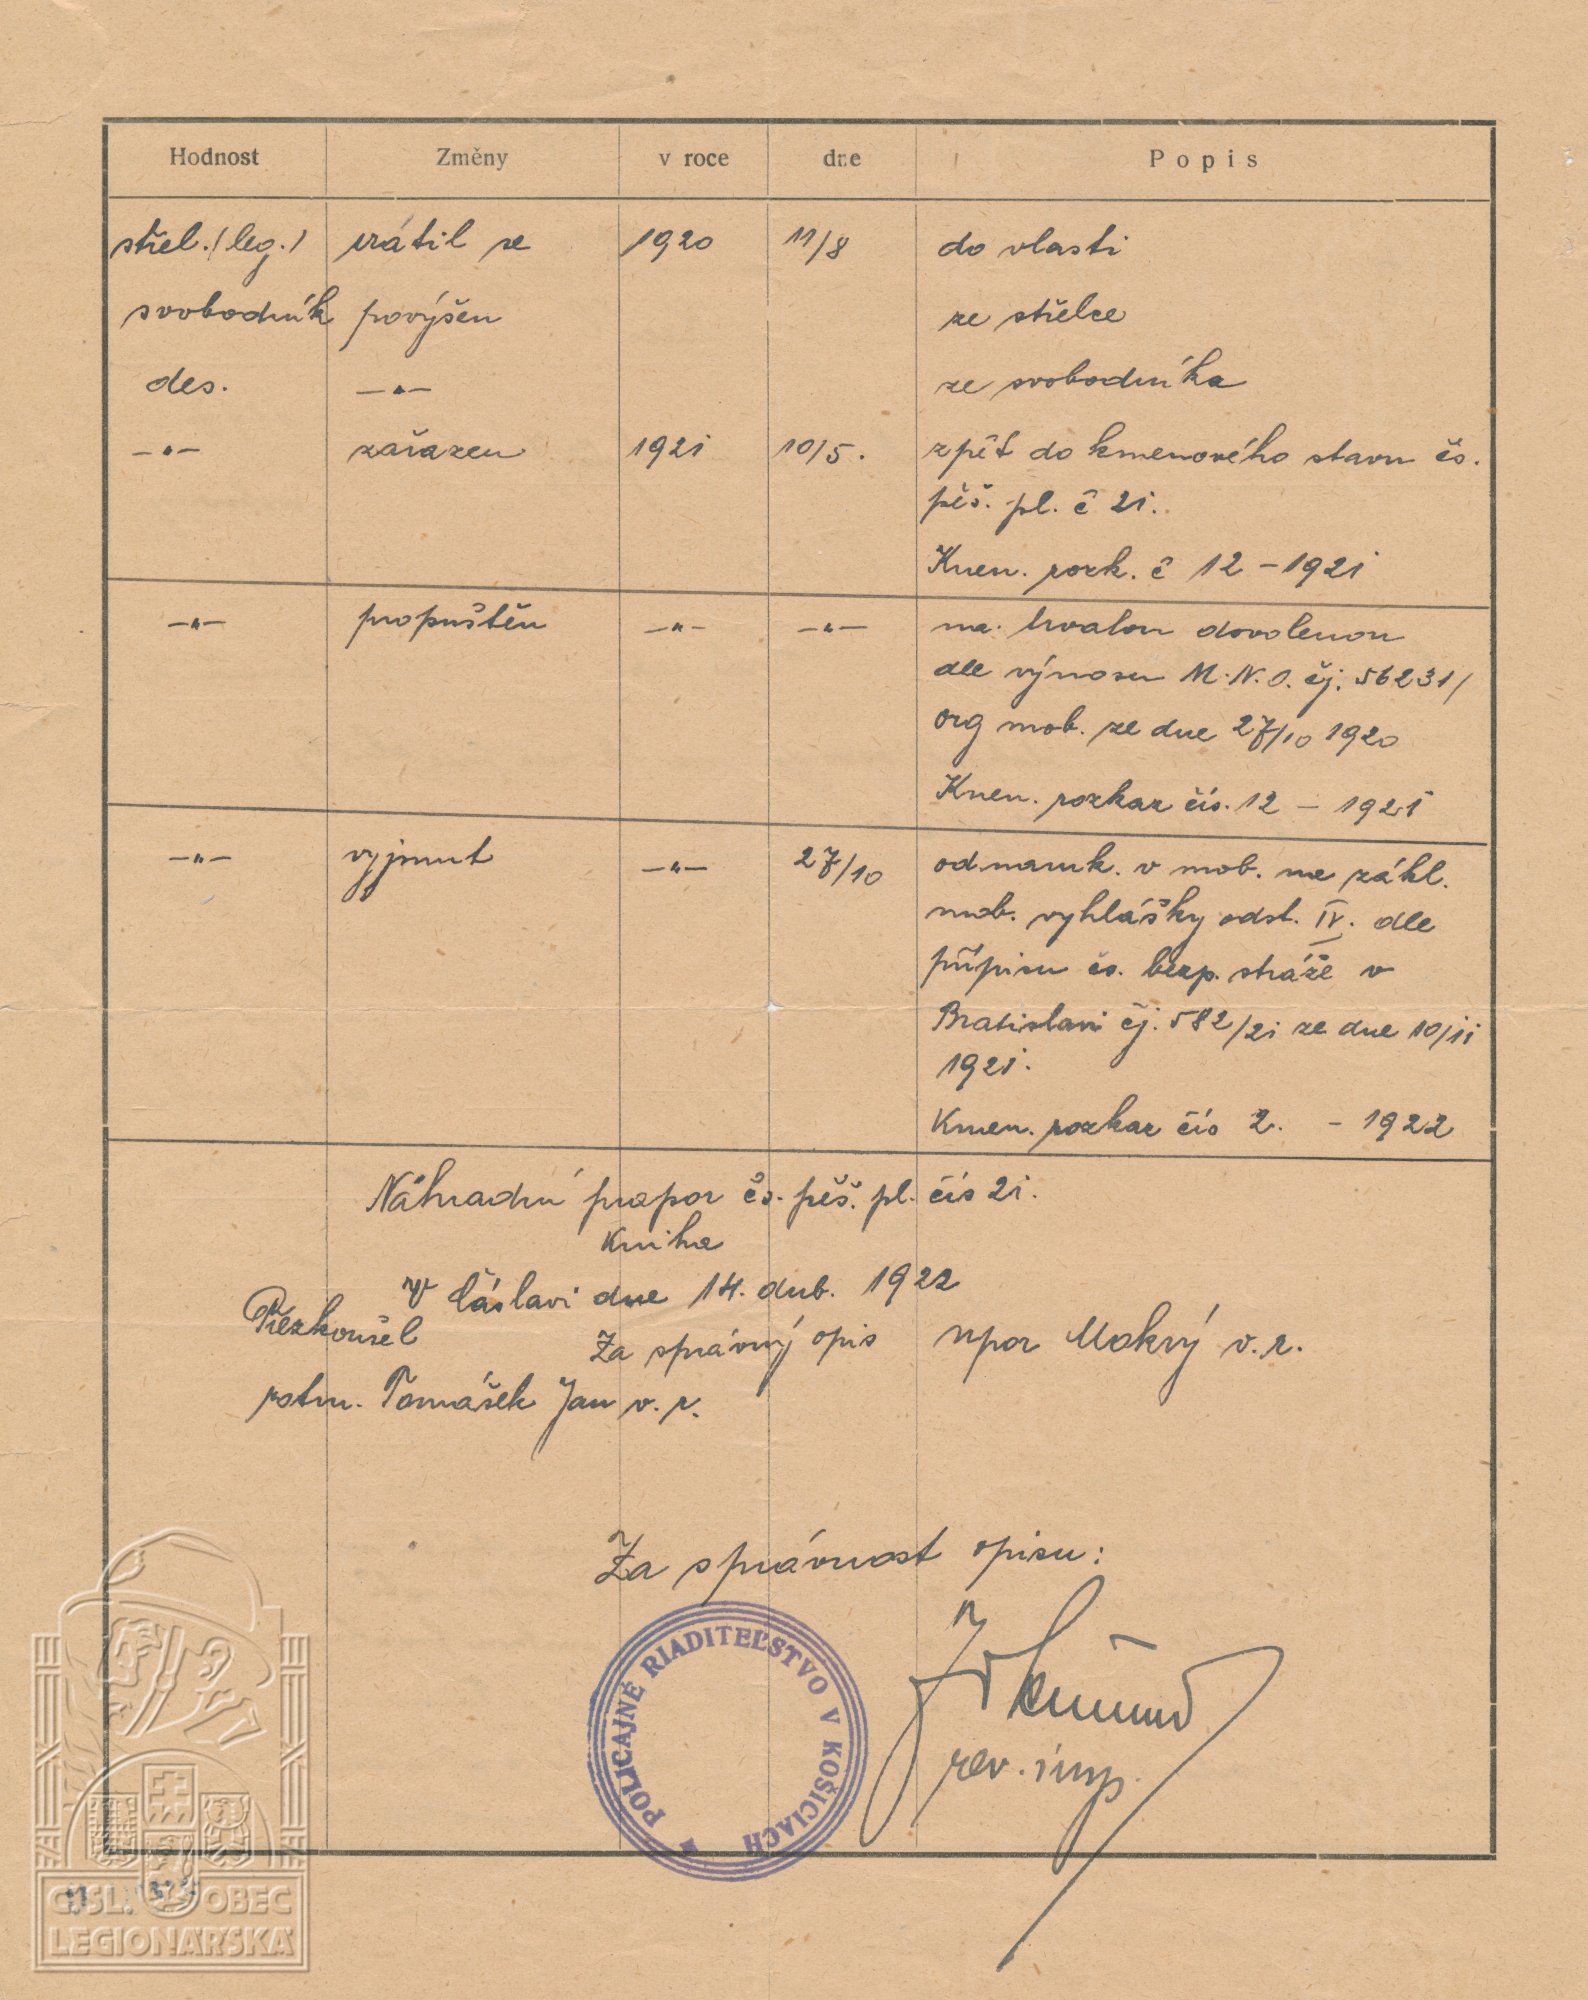 Hodnost Změny v roce dne Popis
střel. (leg.) vrátil se 1920 11/8 do vlasti
svobodník povýšen ze střelce
des. —"— ze svobodníka
—"— zařazen 1921 10/5. zpět do kmenového stavu čs.
pěš. pl. č 21.
Kmen. rozk. č 12 – 1921
—"— propuštěn —"— —"— na trvalou dovolenou
dle výnosu M.N.O. čj. 56231/
org mob. ze dne 27/10 1920
Kmen. rozkaz čís. 12 – 1921
—"— vyjmut —"— 27/10 od naruk. v mob. na zákl.
mob. vyhlášky odst. IV. dle
přípisu čs. bezp. stráže v
Bratislavi čj. 582/21 ze dne 10/11
1921.
Kmen. rozkaz čís 2. – 1922
Náhradní prapor čs. pěš. pl. čís 21.
Kniha
V Čáslavi dne 14. dub. 1922
Přezkoušel
Za správný opis npor Mokrý v.r.
rotm. Tomášek Jan v.r.
Za správnost opisu:
rev. insp.
POLICAJNÉ RIADITEĽSTVO V KOŠICIACH
ČSL. OBEC
LEGIONÁŘSKÁ